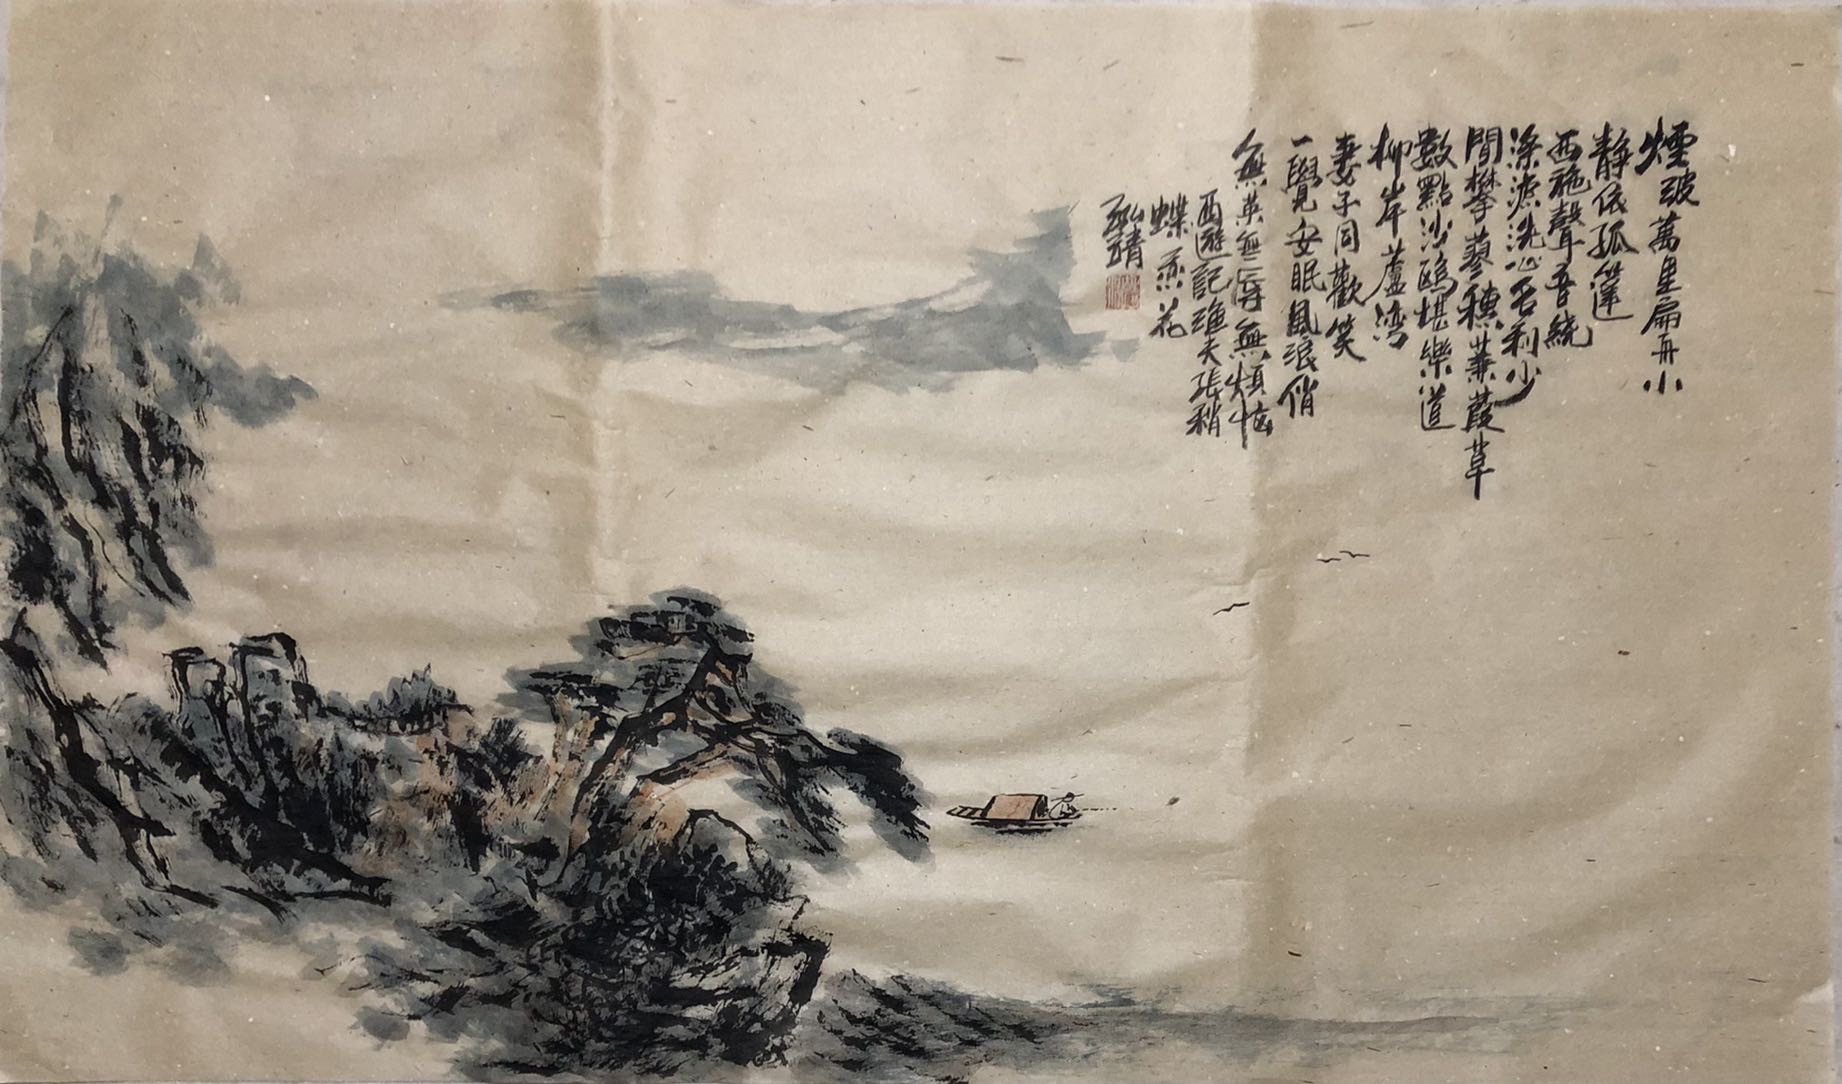 煙波萬里扁舟小
静依孤篷
西施聲音繞
滌慮洗心名利少
閒攀蓼穗蒹葭草
數點沙鷗堪樂道
柳岸蘆湾
妻子同歡笑
一覺安眠風浪俏
無荣無辱無煩惱
西遊記漁夫張稍
蝶恋花